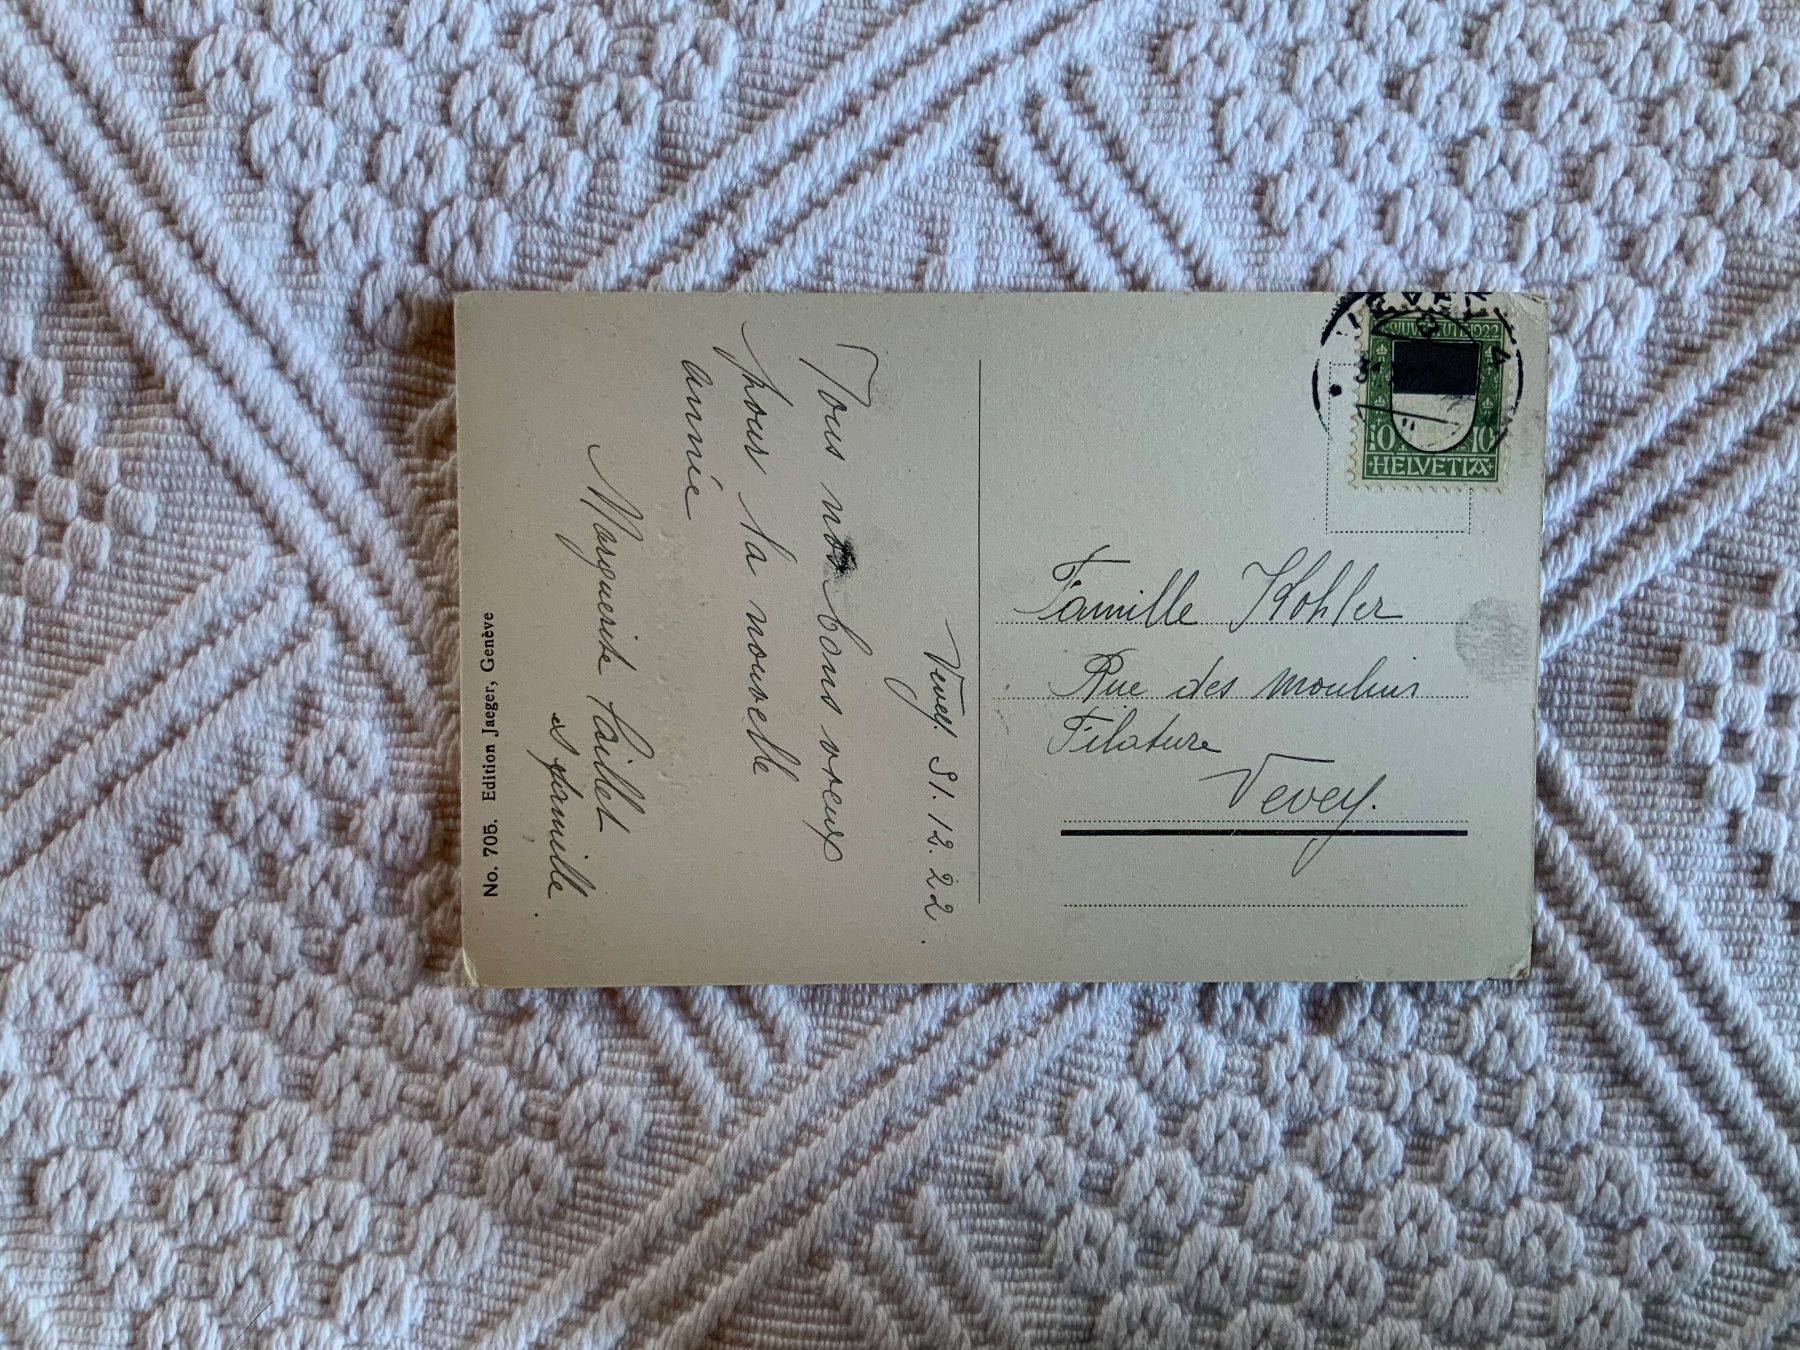 Vevey. 31. 12. 22.
Tous nos bons vœux
pour la nouvelle
année
Marguerite Paillet
et famille
No. 705. Edition Jaeger, Genève
PRO JUVENTUTE 1922
10 10
HELVETIA
Famille Kohler
Rue des moulins
Filature
Vevey.